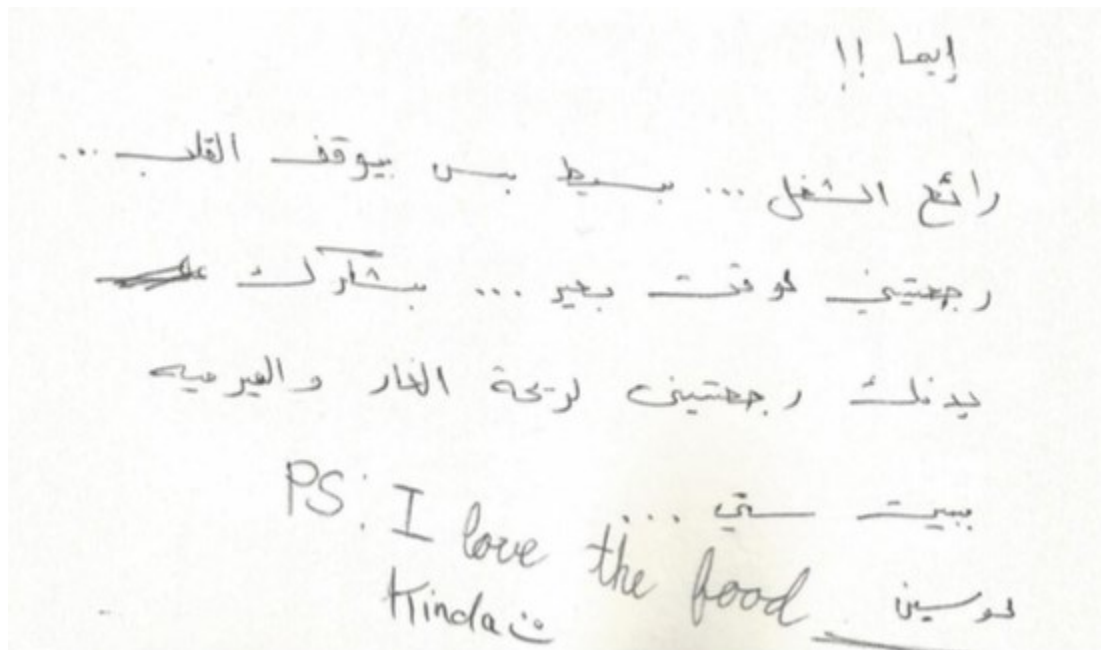 إيما !!
رائع الشغل ... بسيط بس بيوقف القلب ...
رجعتيني لوقت بعير ... بشكرك
يدنك رجعتيني لريحة الغار والميرميه
ببيت ستي ...
PS: I love the food
Kinda